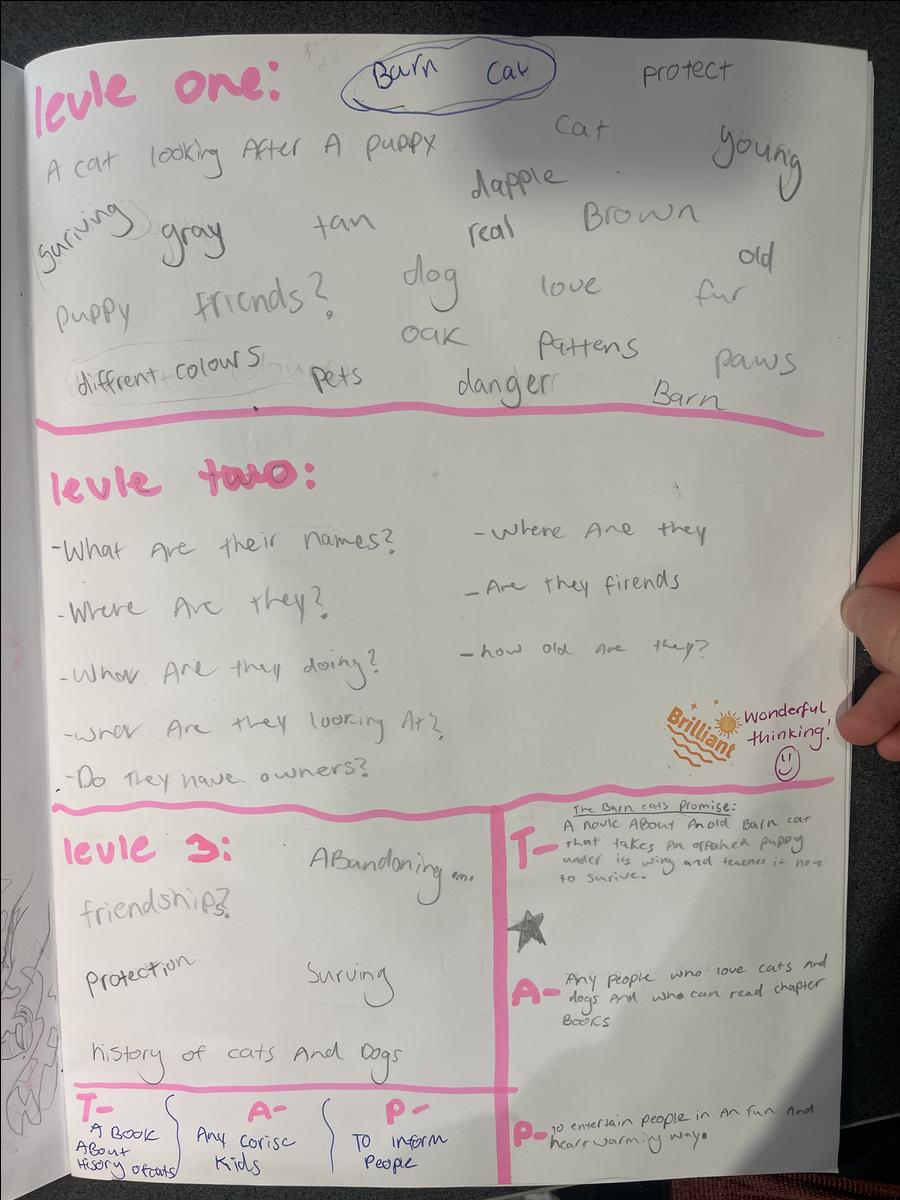 levle one:
Barn cat
protect
A cat looking After A puppy
cat
young
dapple
suriving
gray
tan
real
Brown
old
puppy
friends?
dog
love
fur
oak
pattens
paws
diffrent colours
pets
danger
Barn
levle two:
-What Are their names?
-Where Are they
-Where Are they?
-Are they firends
-What Are they doing?
-how old are they?
-what Are they looking At?
-Do They have owners?
Brilliant
Wonderful
thinking!
levle 3:
ABandoning
friendship?
protection
Surving
history of cats And Dogs
T-
A BOOK
ABout
History of cats
A-
Any
Kids
P-
To inform
People
The Barn cats Promise:
T- A novle ABout An old Barn cat
that takes An puppy
under its wing and teaches it how
to surive.
A- Any people who love cats And
dogs And who can read chapter
BOOKS
P- to entertain people in An fun And
heartwarming way.